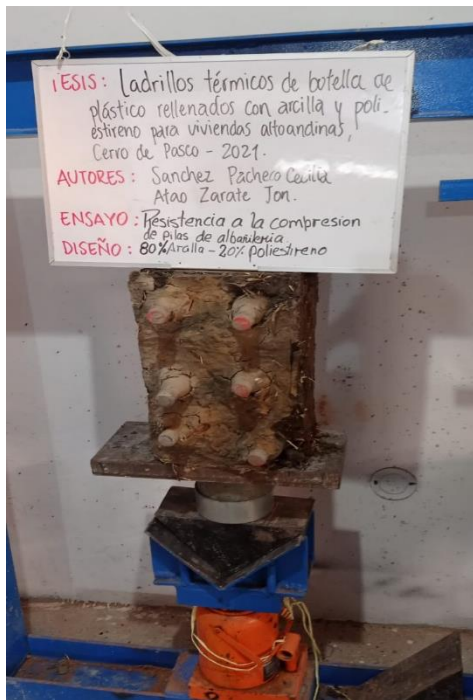 TESIS: Ladrillos térmicos de botella de
plástico rellenados con arcilla y poli-
estireno para viviendas altoandinas,
Cerro de Pasco - 2021.
AUTORES: Sanchez Pacheco Cecilia
Atao Zarate Jon.
ENSAYO: Resistencia a la compresion
de pilas de albañileria
DISEÑO: 80% Arcilla - 20% poliestireno